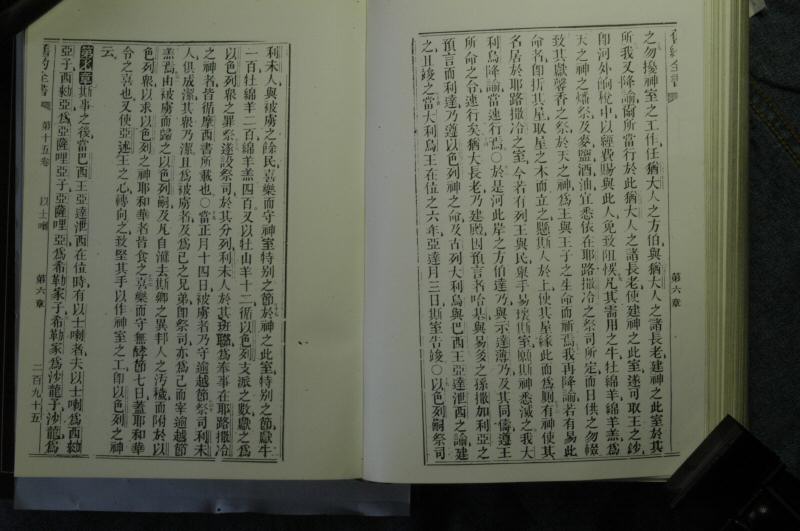 舊約全書
之勿擾神室之工作任猶大人之方伯與猶大人之諸長老建神之此室於其
所我又降諭爾所當行於此猶大人之諸長老使建神之此室遂可取王之鈔
即河外餉稅中以經費賜與此人免致阻慢凡其需用之牛牡綿羊綿羊羔爲
天之神之燔祭及麥鹽酒油宜悉依在耶路撒冷之祭司所定而日供之勿輟
致其獻馨香之祭於天之神爲王與王子之生命而祈焉我再降諭若有易此
命名即折其星取星之木而立之懸斯人於上使其星緣此而爲厠有神使其
名居於耶路撒冷之室今若有列王與民舉手易壞斯室願斯神悉滅之我大
利烏降諭當速行焉〇於是河此岸之方伯達乃與示達薄乃及其同儔遵王
所命之令速行矣猶大長老乃建殿因預言者哈基與易多之孫撒加利亞之
預言而利達乃遵以色列神之命及古列大利烏與巴西王亞達泄西之諭建
之且竣之當大利烏王在位之六年亞達月三日斯室告竣〇以色列嗣祭司
第六章
利未人與被虜之餘民喜樂而守神室特別之節於神之此室特別之節獻牛
一百牡綿羊二百綿羊羔四百又以牡山羊十二循以色列支派之數獻之爲
以色列衆之罪祭遂設祭司於其分列利未人於其班聯爲奉事在耶路撒冷
之神者皆循摩西書所載也〇當正月十四日被虜者乃守逾越節祭司利未
人俱成潔其衆乃潔且爲被虜者及爲己之兄弟即祭司亦爲己而宰逾越節
羔焉由被虜而歸之以色列嗣及凡自濾去斯鄉之異邦人之汚穢而附於以
色列衆以求以色列之神耶和華者皆食之喜樂而守無酵節七日蓋耶和華
令之喜也又使亞述王之心轉向之致堅其手以作神室之工即以色列之神
云
第七章斯事之後當巴西王亞達泄西在位時有以士喇者夫以士喇爲西勑
亞子西勑亞爲亞薩哩亞子亞薩哩亞爲希勒家子希勒家爲沙龍子沙龍爲
舊約全書 第十五卷 以士喇 第六章 二百九十五